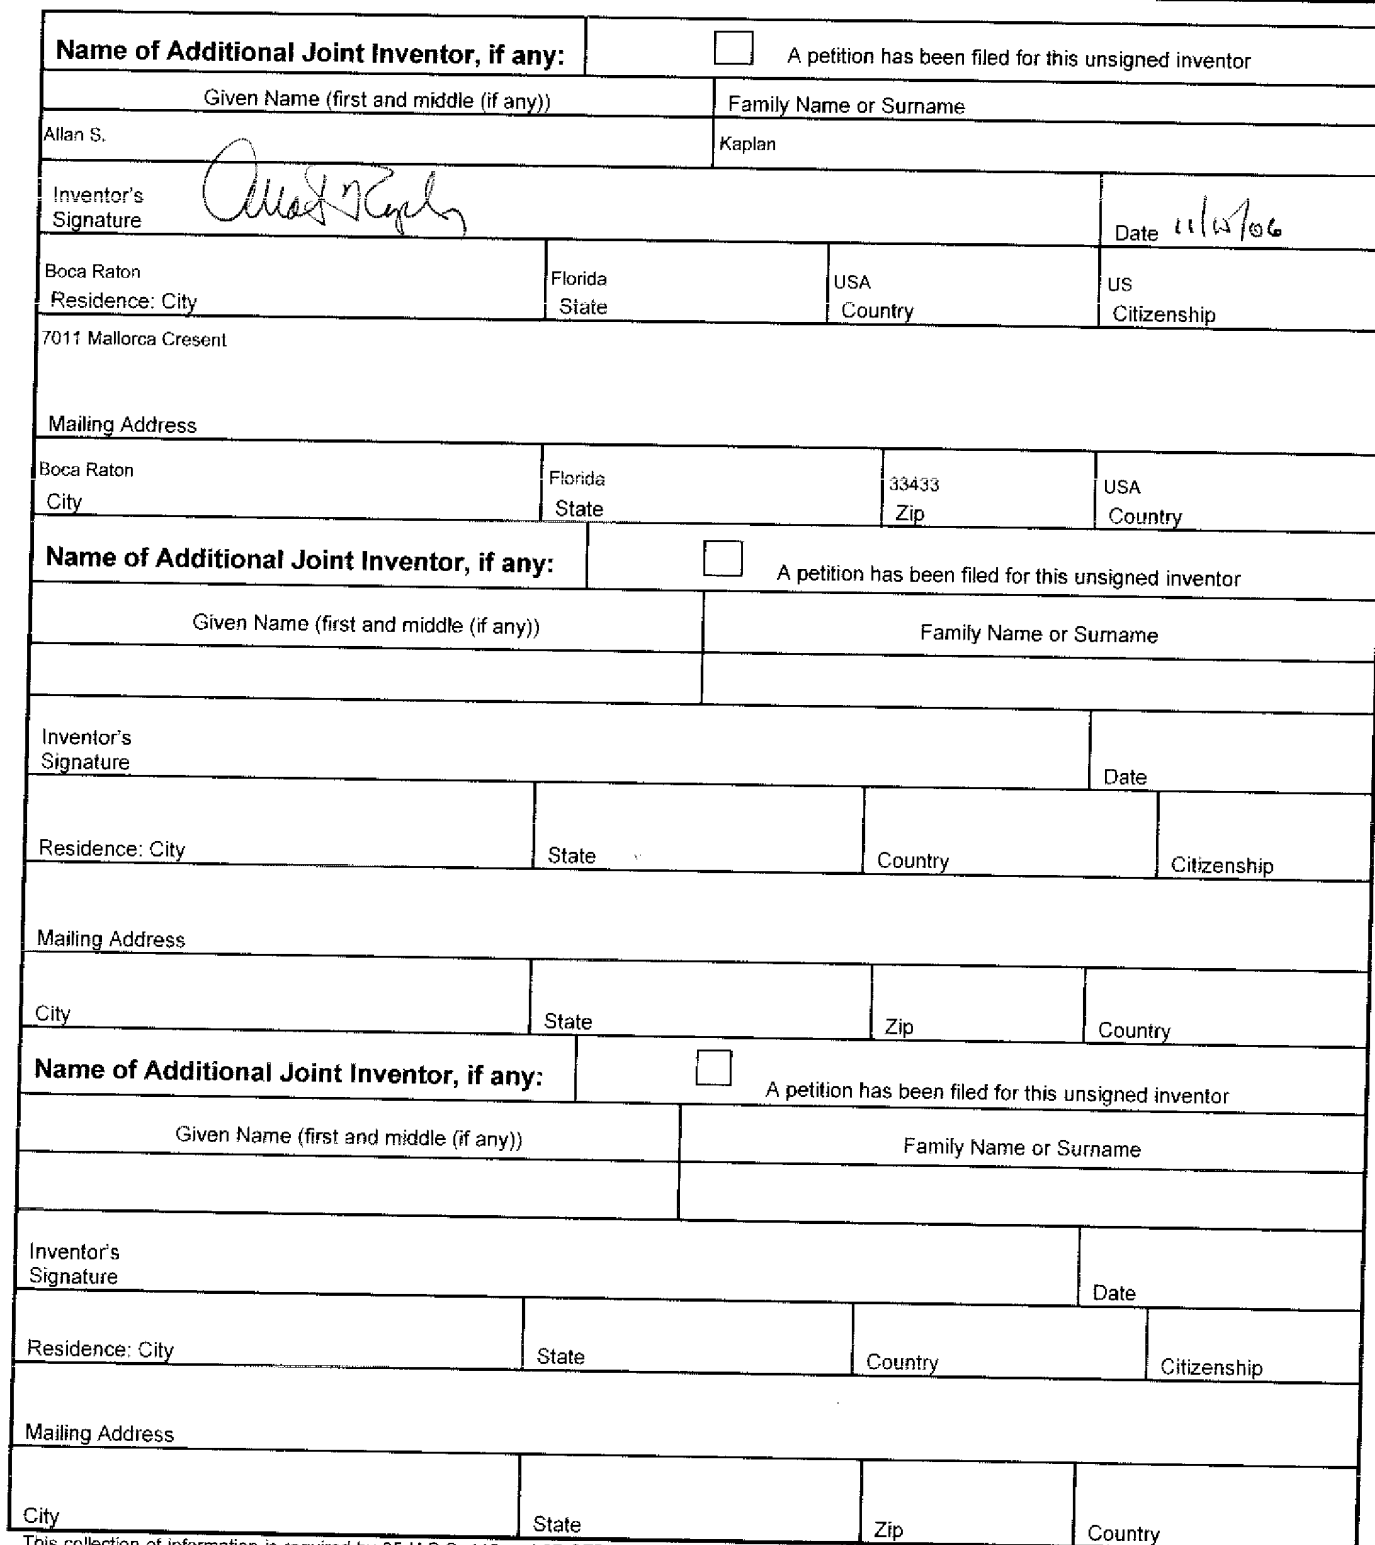 Name of Additional Joint Inventor, if any: A petition has been filed for this unsigned inventor
Given Name (first and middle (if any)) Family Name or Surname
Allan S. Kaplan
Inventor's
Signature Date
Boca Raton Florida USA US
Residence: City State Country Citizenship
7011 Mallorca Cresent
Mailing Address
Boca Raton Florida 33433 USA
City State Zip Country
Name of Additional Joint Inventor, if any: A petition has been filed for this unsigned inventor
Given Name (first and middle (if any)) Family Name or Surname
Inventor's
Signature Date
Residence: City State Country Citizenship
Mailing Address
City State Zip Country
Name of Additional Joint Inventor, if any: A petition has been filed for this unsigned inventor
Given Name (first and middle (if any)) Family Name or Surname
Inventor's
Signature Date
Residence: City State Country Citizenship
Mailing Address
City State Zip Country
This collection of information is required by 35 U.S.C.